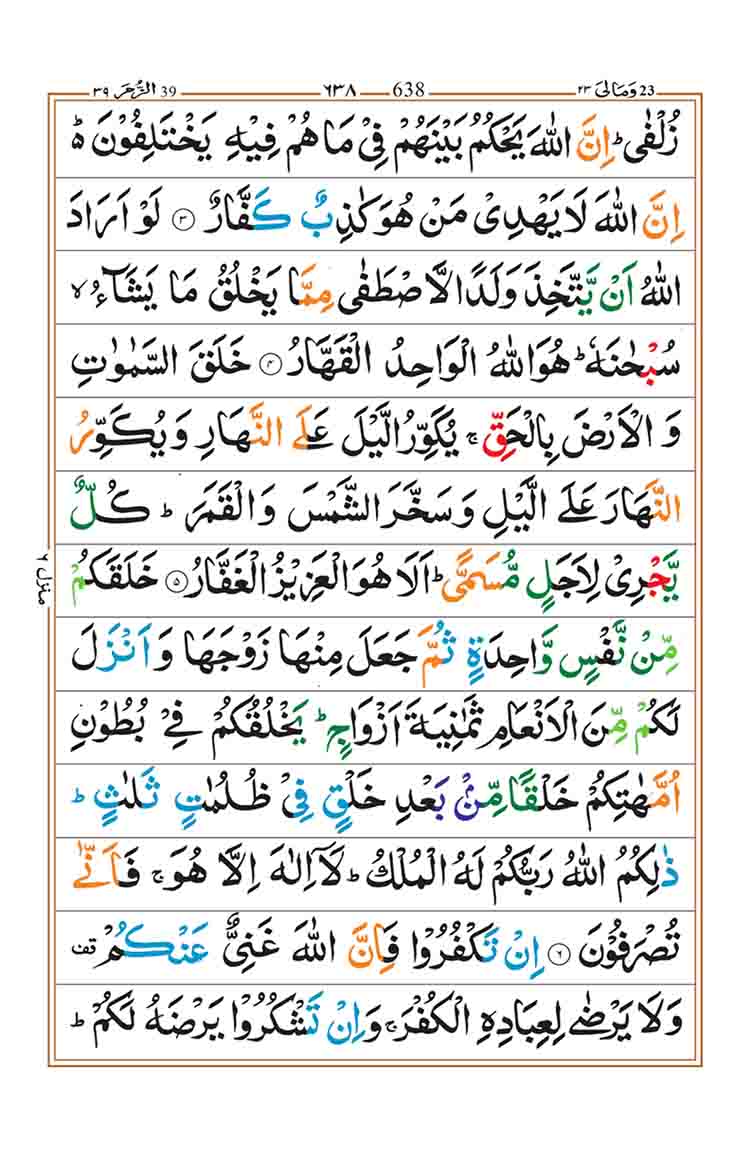 الزُّمَر ٣٩ 39 ٦٣٨ 638 وَمَالِیَ ٢٣ 23
زُلْفٰىؕ اِنَّ اللّٰهَ یَحْكُمُ بَیْنَهُمْ فِیْ مَا هُمْ فِیْهِ یَخْتَلِفُوْنَ ۬ؕ
اِنَّ اللّٰهَ لَا یَهْدِیْ مَنْ هُوَ كٰذِبٌ كَفَّارٌ ۝۳ لَوْ اَرَادَ
اللّٰهُ اَنْ یَّتَّخِذَ وَلَدًا لَّاصْطَفٰى مِمَّا یَخْلُقُ مَا یَشَآءُ ۙ
سُبْحٰنَهٗؕ هُوَ اللّٰهُ الْوَاحِدُ الْقَهَّارُ ۝۴ خَلَقَ السَّمٰوٰتِ
وَ الْاَرْضَ بِالْحَقِّ ۚ یُكَوِّرُ الَّیْلَ عَلَى النَّهَارِ وَ یُكَوِّرُ
النَّهَارَ عَلَى الَّیْلِ وَ سَخَّرَ الشَّمْسَ وَ الْقَمَرَ ؕ كُلٌّ
یَّجْرِیْ لِاَجَلٍ مُّسَمًّىؕ اَلَا هُوَ الْعَزِیْزُ الْغَفَّارُ ۝۵ خَلَقَكُمْ
مِّنْ نَّفْسٍ وَّاحِدَةٍ ثُمَّ جَعَلَ مِنْهَا زَوْجَهَا وَ اَنْزَلَ
لَكُمْ مِّنَ الْاَنْعَامِ ثَمٰنِیَةَ اَزْوَاجٍؕ یَخْلُقُكُمْ فِیْ بُطُوْنِ
اُمَّهٰتِكُمْ خَلْقًا مِّنْۢ بَعْدِ خَلْقٍ فِیْ ظُلُمٰتٍ ثَلٰثٍ ؕ
ذٰلِكُمُ اللّٰهُ رَبُّكُمْ لَهُ الْمُلْكُؕ لَاۤ اِلٰهَ اِلَّا هُوَۚ فَاَنّٰى
تُصْرَفُوْنَ ۝۶ اِنْ تَكْفُرُوْا فَاِنَّ اللّٰهَ غَنِیٌّ عَنْكُمْ قف
وَ لَا یَرْضٰى لِعِبَادِهِ الْكُفْرَۚ وَ اِنْ تَشْكُرُوْا یَرْضَهُ لَكُمْ ؕ
منزل ٦